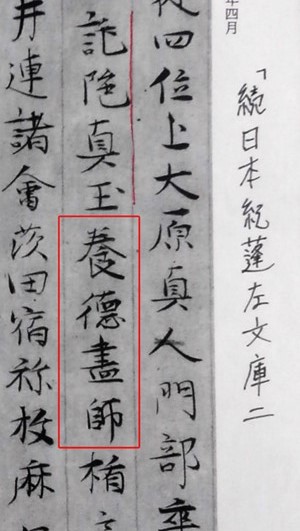 年四月
「続日本紀蓬左文庫二
從四位上大原真人門部卒
詑陁真玉養德盡師楯
井連諸會茨田宿祢枚麻